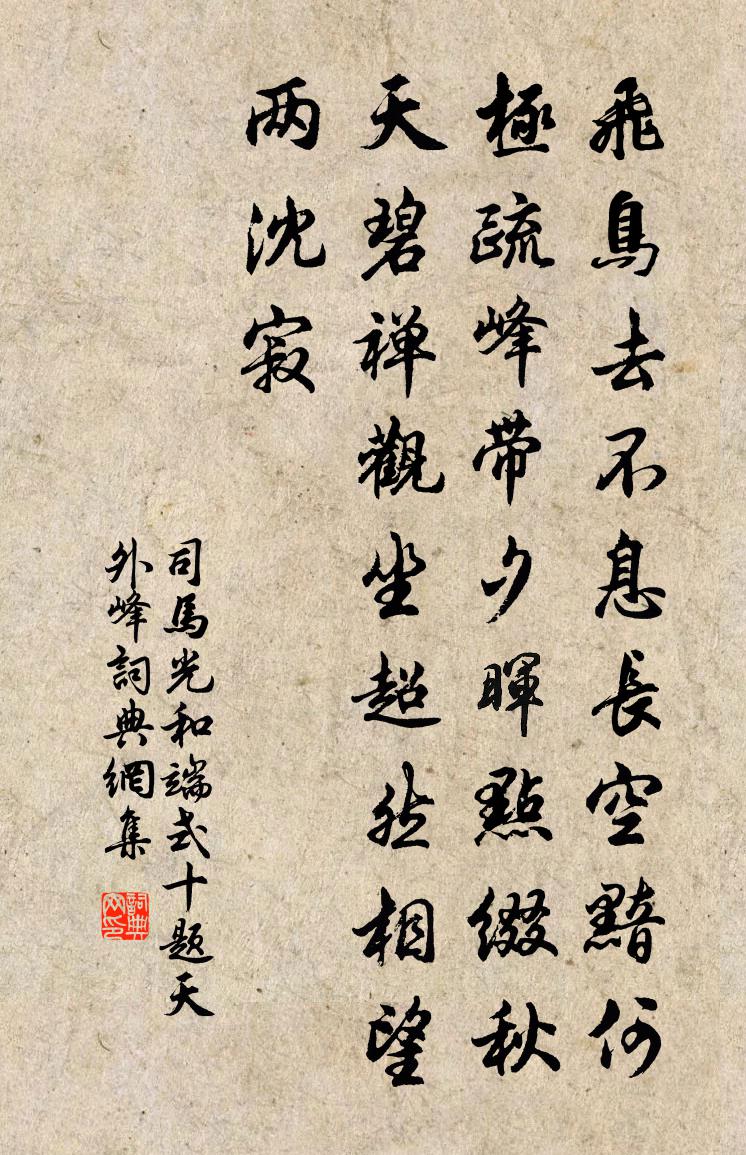 飛鳥去不息長空黯何
極疏峰帶夕暉點綴秋
天碧禅觀坐超然相望
两沈寂
司馬光和端式十题天
外峰詞典網集
詞典
网印